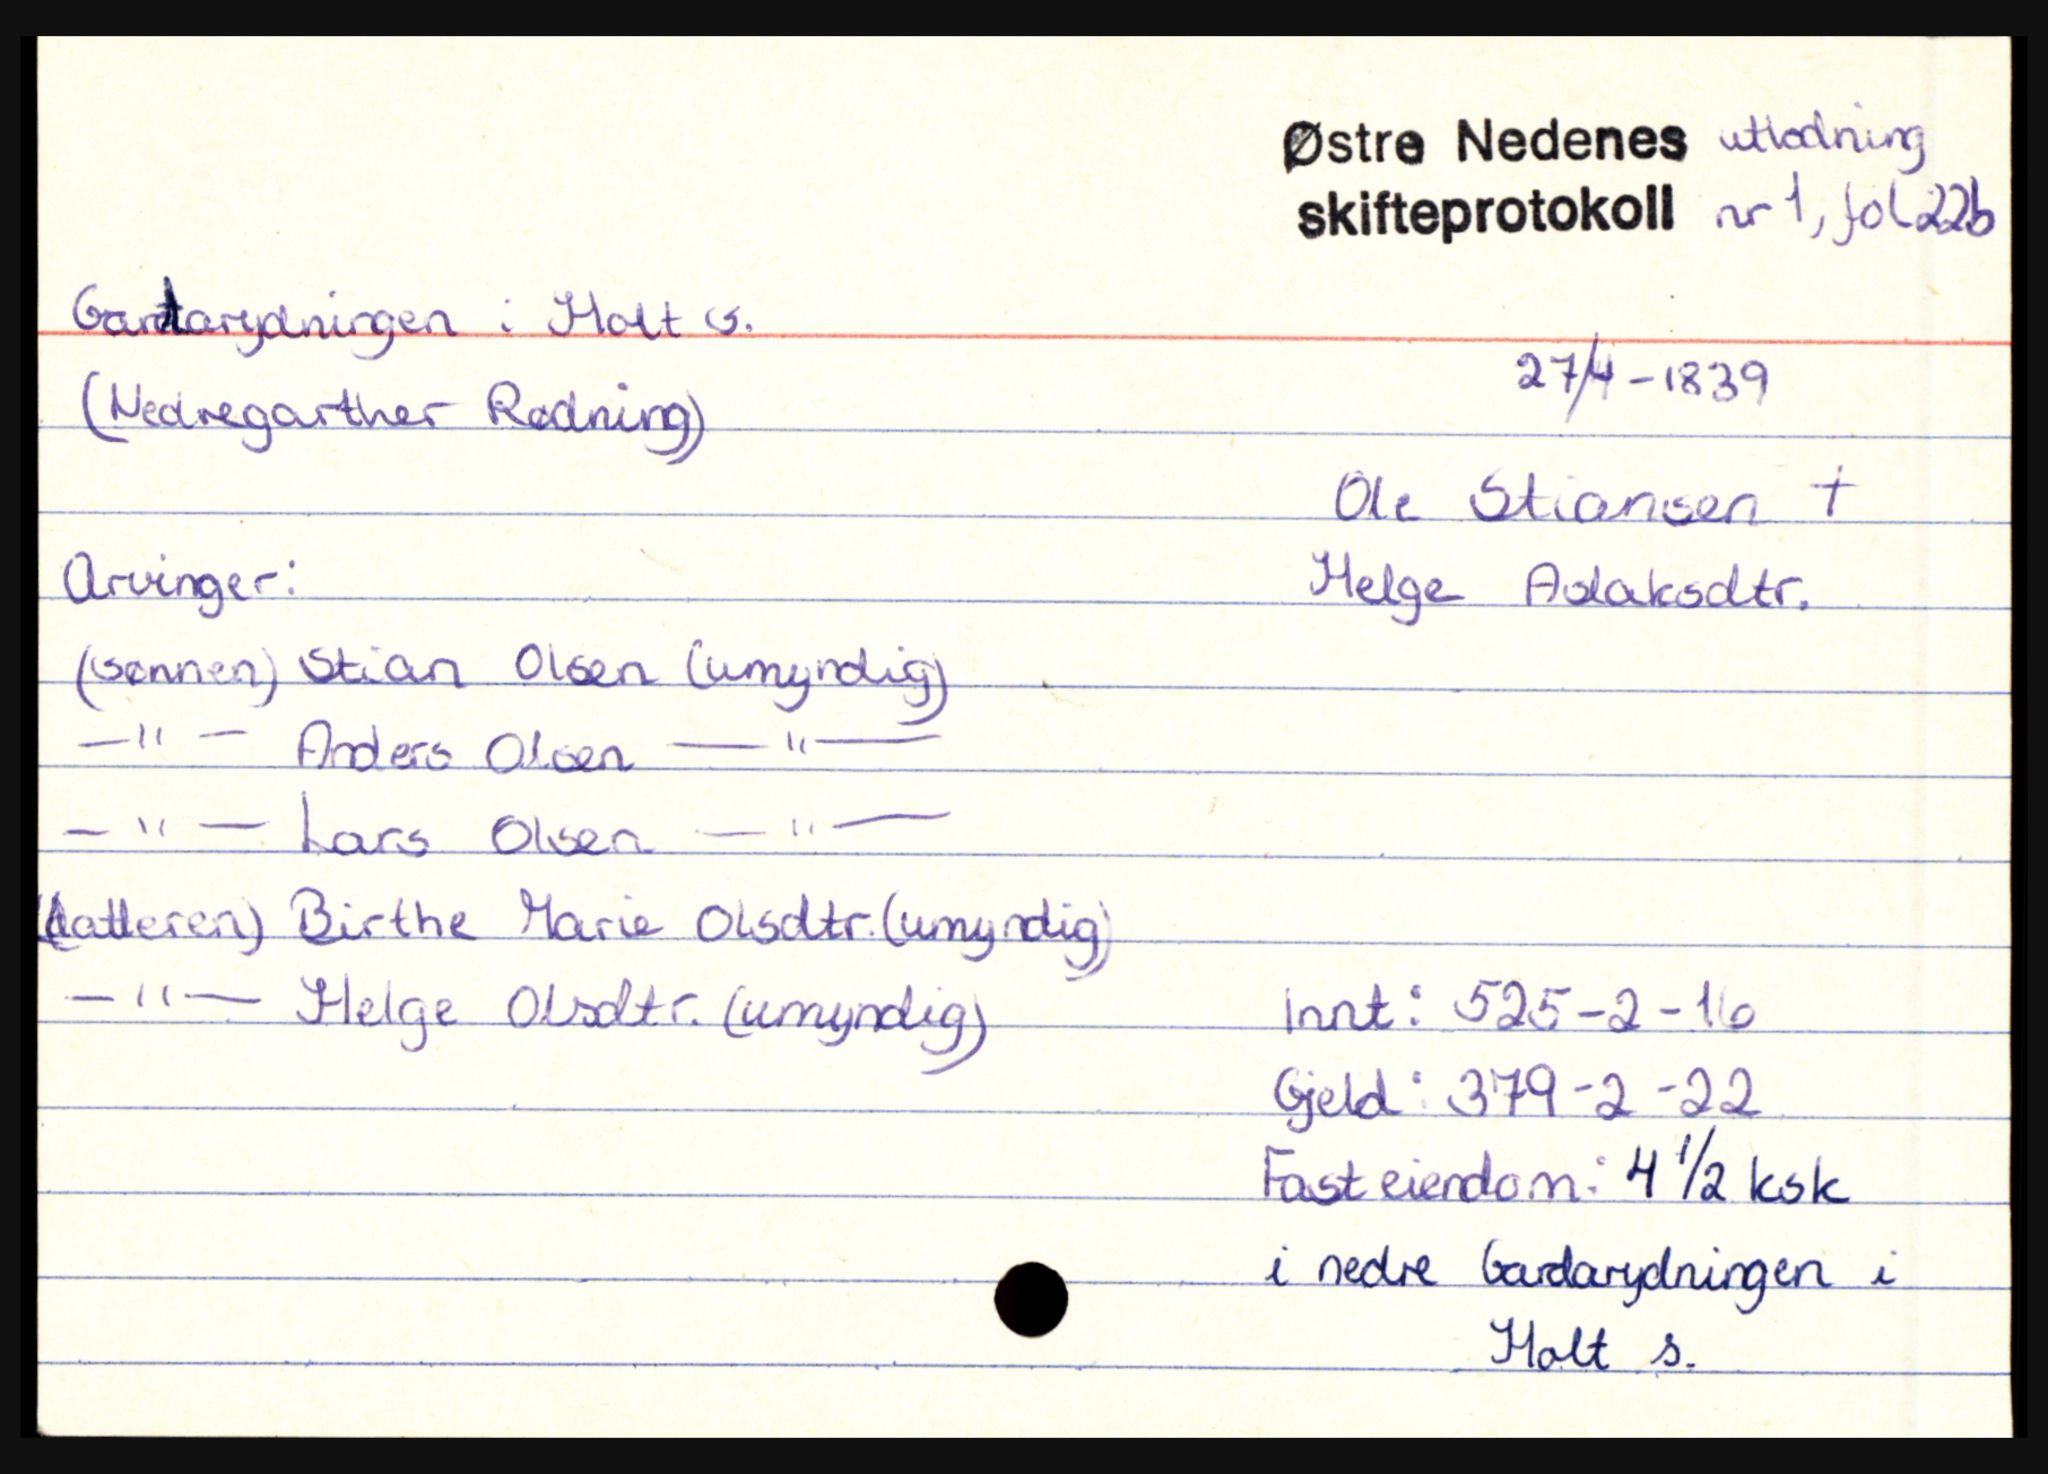 Østre Nedenes utlodning
skifteprotokoll nr 1, fol 22b
Gardarydningen i Holt s.
27/4-1839
(Nedregarther Rødning)
Ole Stiansen +
Arvinger:
Helge Aslaksdtr.
(sønnen) Stian Olsen (umyndig)
—"— Anders Olsen —"—
—"— Lars Olsen —"—
(datteren) Birthe Marie Olsdtr. (umyndig)
—"— Helge Olsdtr. (umyndig)
Innt: 525-2-16
Gjeld: 379-2-22
Fast eiendom: 4 1/2 ksk
i nedre Gardarydningen i
Holt s.